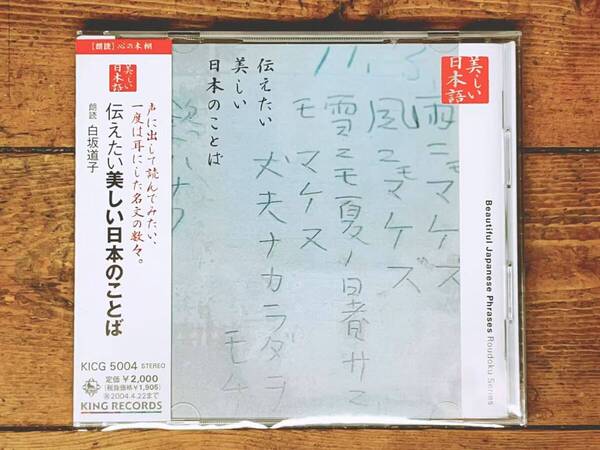 ［朗読］心の本棚
美しい
日本語
声に出して読んでみたい、
一度は耳にした名文の数々。
伝えたい美しい日本のことば
朗読 白坂道子
KICG 5004 STEREO
定価 ￥2,000
(税抜価格￥1,905)
2004.4.22まで
KING RECORDS
伝えたい
美しい
日本のことば
雨ニモマケズ
風ニモマケズ
雪ニモ夏ノ暑サニモ
マケヌ
丈夫ナカラダヲ
モチ
美しい
日本語
Beautiful Japanese Phrases Roudoku Series